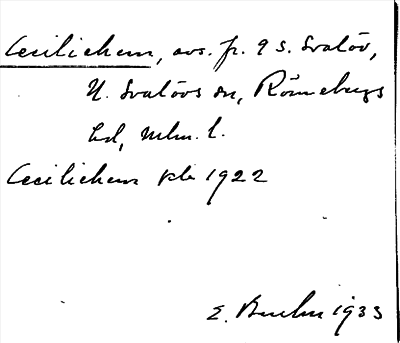 Ceciliehem, avs. fr. 9 s. Svalöv,
N. Svalövs sn, Rönnebergs
hd, Mlm. l.
Ceciliehem kla 1922
E. Bruhn 1933